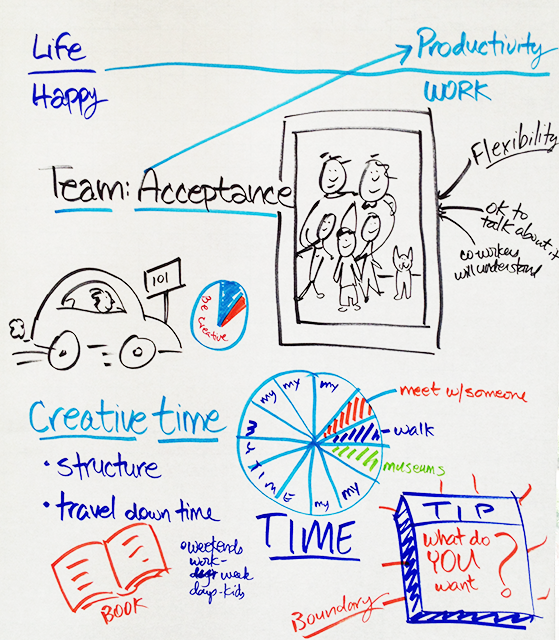 Life
Productivity
Happy
WORK
Flexibility
Team: Acceptance
OK to
talk about it
co-workers
will understand
101
Be
Creative
my my my
meet w/someone
Creative time
MY TIME
walk
museums
• structure
my my
• travel down time
TIME
TIP
• weekends
work-
week
days-kids
what do
YOU
want ?
BOOK
Boundary